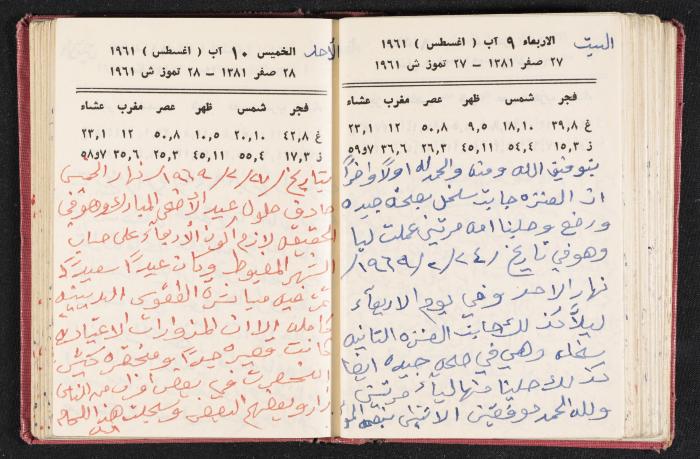 البيت
الاربعاء ٩ آب ( اغسطس ) ١٩٦١
٢٧ صفر ١٣٨١ — ٢٧ تموز ش ١٩٦١
فجر شمس ظهر عصر مغرب عشاء
غ ٣٩,٨ ١٨,١٠ ٩,٥ ٥٠,٨ ١٢ ٢٣,١
ز ١٥,٣ ٥٤,٤ ٤٥,١١ ٢٦,٣ ٣٦,٦ ٥٩و٧
بتوفيق الله ومنه والحمد لله اولاً واخراً
ان العنزه جابت سخل بصحه جيده
ورضع وحلبنا امه مرتين عملت لبا
وهو في تاريخ /٢٤/ ٢/ ١٩٦٩/
نهار الاحد وفي يوم الاربعاء
ليلاً كذلك جابت العنزه الثانيه
سخله وهي في صحه جيده ايضا
كذلك حلبنا منها لباء مرتين
ولله الحمد موقفين الاثنين
الأحد
الخميس ١٠ آب ( اغسطس ) ١٩٦١
٢٨ صفر ١٣٨١ — ٢٨ تموز ش ١٩٦١
فجر شمس ظهر عصر مغرب عشاء
غ ٤٢,٨ ٢٠,١٠ ١٠,٥ ٥٠,٨ ١٢ ٢٣,١
ز ١٧,٣ ٥٥,٤ ٤٥,١١ ٢٥,٣ ٣٥,٦ ٥٨و٧
بتاريخ /٢٧/ ٢/ ١٩٦٩/ نهار الخميس
صادف حلول عيد الاضحى المبارك وهو في
الحقيقه لازم الاربعاء على حساب
الشهر المضبوط وكان عيداً سعيداً
من جهة مباشرة الطقوس الدينيه
كامله الا ان المزورات الاعتياديه
كانت قصيره جداً ومختصره
في بعض افراد من الناس
زاروا بعضهم البعض وسجلت هذه